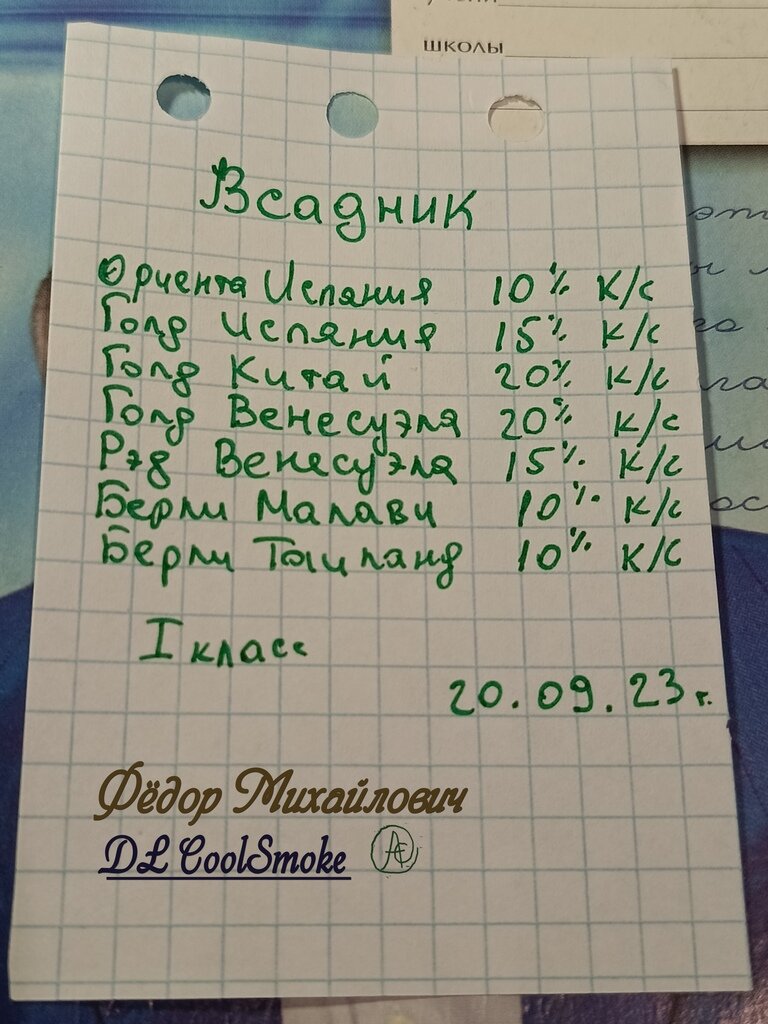 ШКОЛЫ
Всадник
Ориента Испания 10% К/с
Голд Испания 15% К/с
Голд Китай 20% К/с
Голд Венесуэла 20% К/с
Рэд Венесуэла 15% К/с
Берли Малави 10% К/с
Берли Тыиланд 10% К/С
I класс
20.09.23 г.
Фёдор Михайлович
DL CoolSmoke